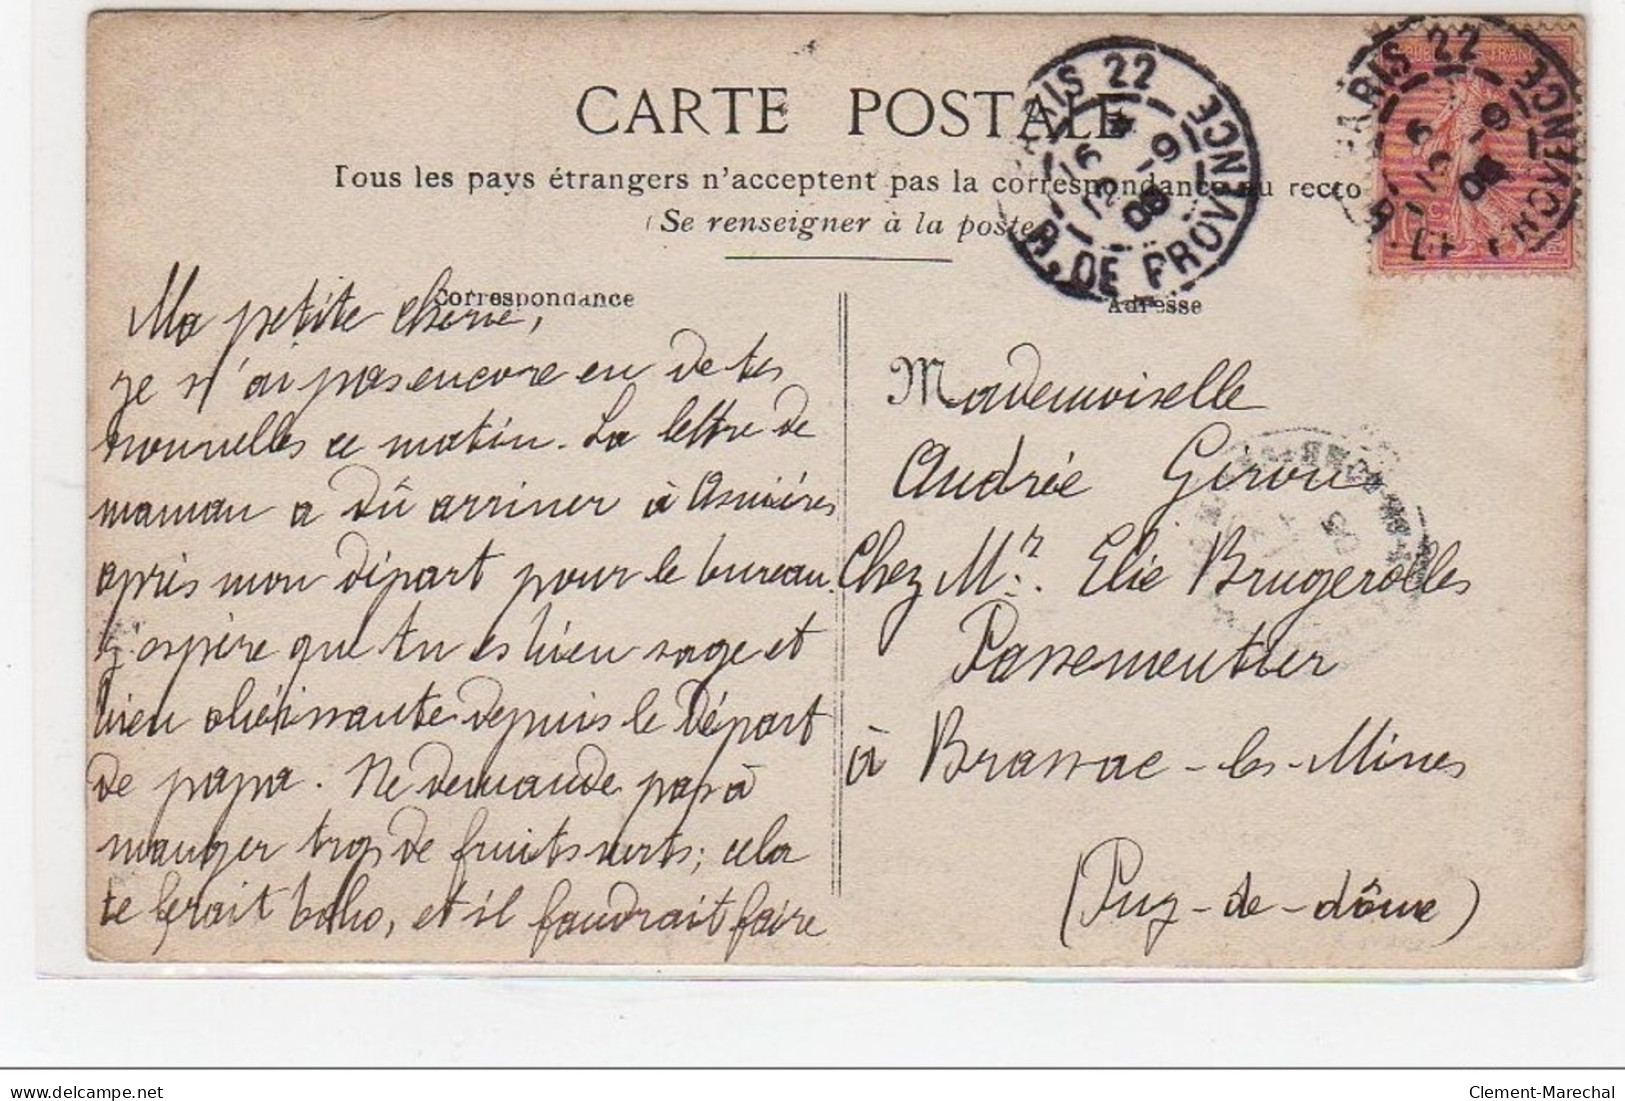 CARTE POSTALE
Tous les pays étrangers n'acceptent pas la correspondance au recto
(Se renseigner à la poste
Correspondance
Ma petite chérie,
je n'ai pas encore eu de tes
nouvelles ce matin. La lettre de
maman a dû arriver à Asnières
après mon départ pour le bureau.
J'espère que tu es bien sage et
bien obéissante depuis le départ
de papa. Ne demande pas à
manger trop de fruits verts; cela
te ferait bobo, et il faudrait faire
Adresse
Mademoiselle
Andrée
Chez Mr. Elie Brugerolles
Passementier
à Brassac-les-Mines
(Puy-de-dôme)
PARIS 22
R. DE PROVENCE
16
6-9
08
PARIS 22
R. DE PROVENCE
16
6-9
08
www.delcampe.net
Clement-Marechal